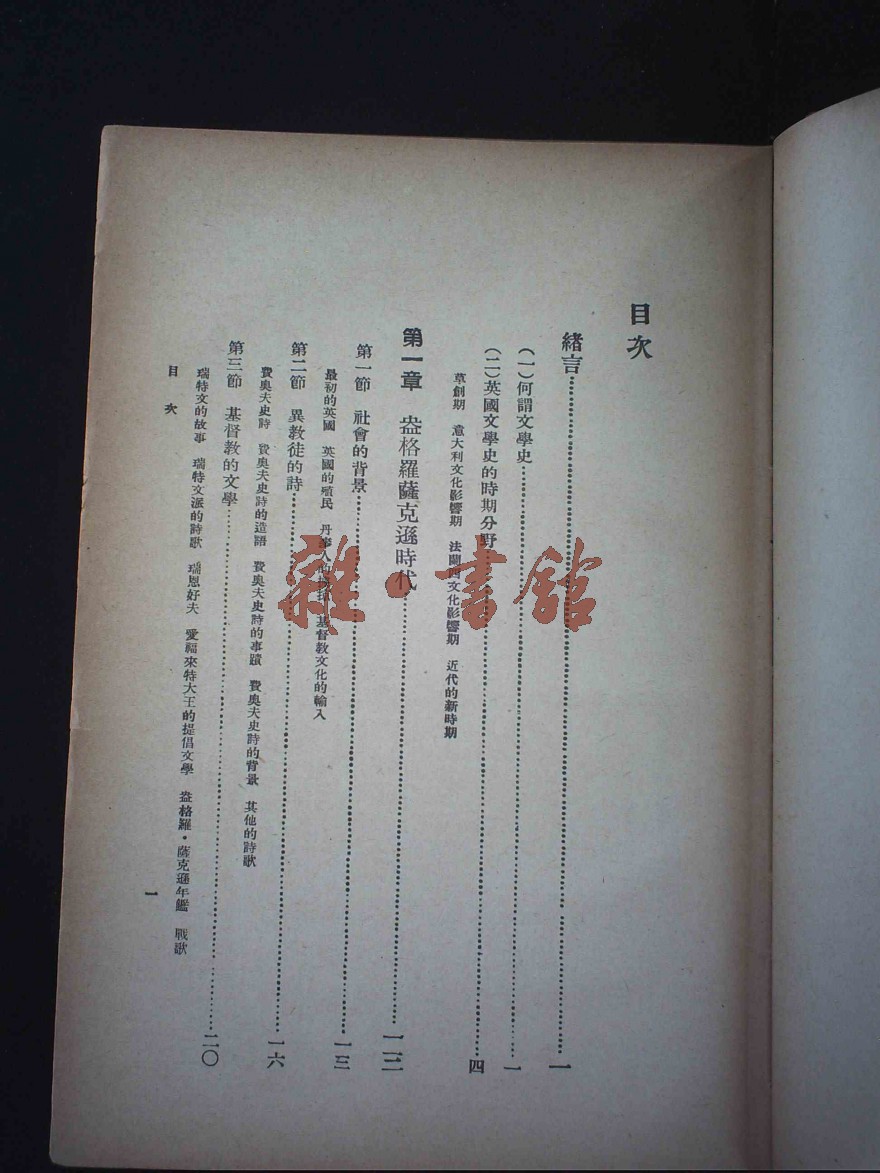 目次
緒言……一
(一)何謂文學史……一
(二)英國文學史的時期分野……四
草創期 意大利文化影響期 法蘭西文化影響期 近代的新時期
第一章 盎格羅薩克遜時代……一二
第一節 社會的背景……一三
最初的英國 英國的殖民 丹麥人的 基督教文化的輸入
第二節 異教徒的詩……一六
費奧夫史詩 費奧夫史詩的造語 費奧夫史詩的事蹟 費奧夫史詩的背景 其他的詩歌
第三節 基督教的文學……二〇
瑞特文的故事 瑞特文派的詩歌 瑞恩好夫 愛福來特大王的提倡文學 盎格羅·薩克遜年鑑 戰歌
目次
一
雜·書館